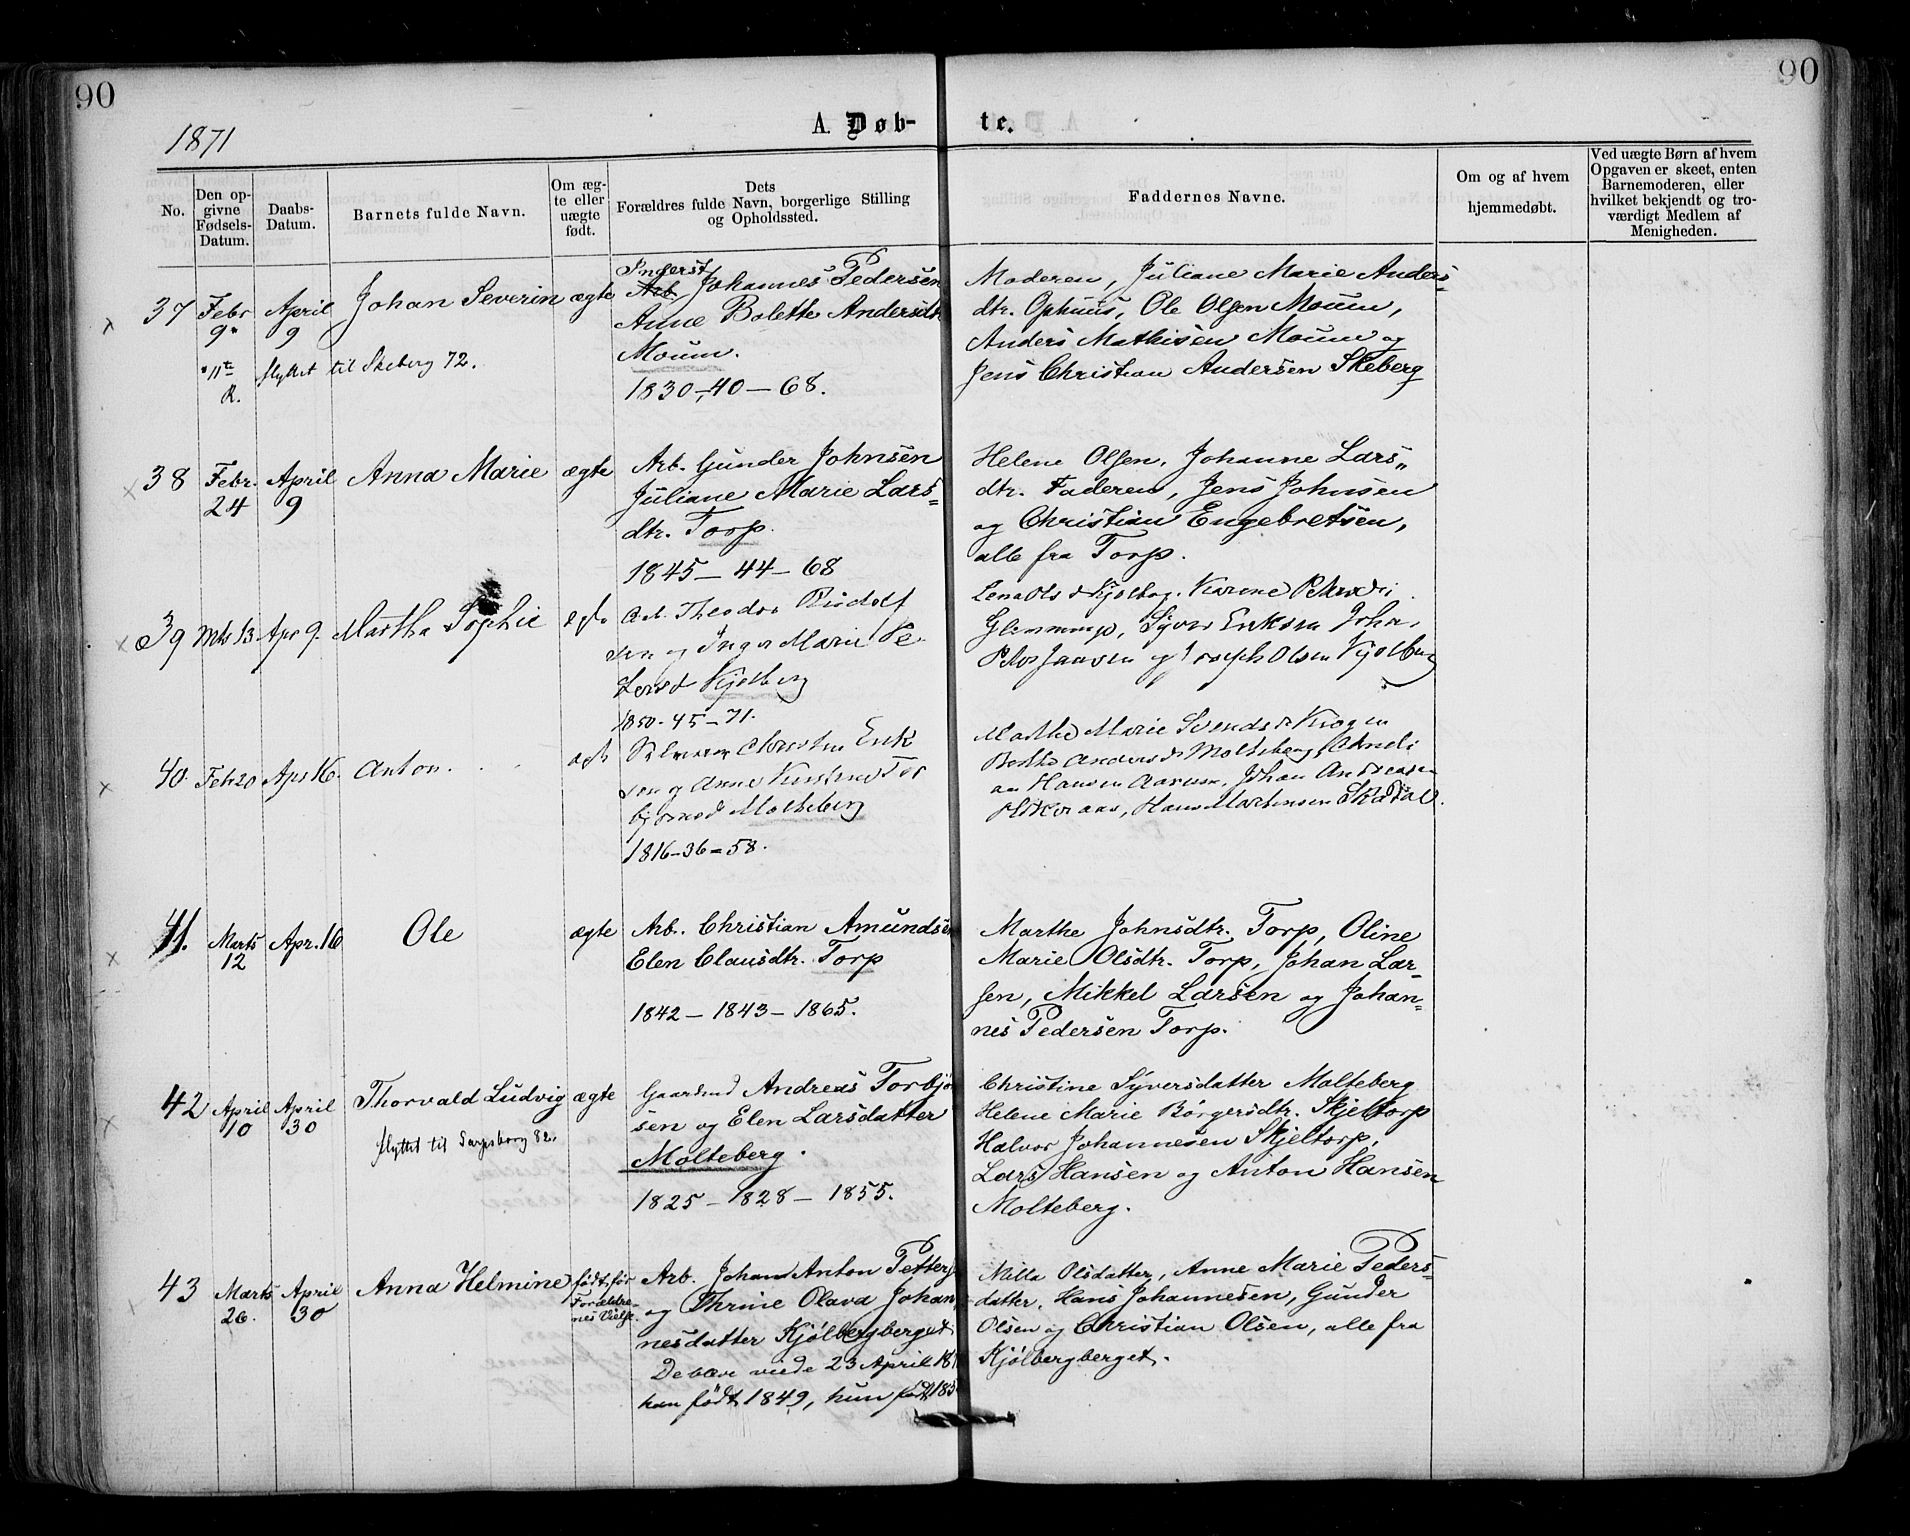 90
90
1871
A. Døb-
te.
No.
Den op-
givne
Fødsels-
Datum.
Daabs-
Datum.
Barnets fulde Navn.
Om æg-
te eller
uægte
født.
Dets
Forældres fulde Navn, borgerlige Stilling
og Opholdssted.
Faddernes Navne.
Om og af hvem
hjemmedøbt.
Ved uægte Børn af hvem
Opgaven er skeet, enten
Barnemoderen, eller
hvilket bekjendt og tro-
værdigt Medlem af
Menigheden.
37 Febr 9 April 9 Johan Severin ægte
flyttet til Skeberg 72.
Inderst
Arb. Johannes Pedersen
Anne Bolette Andersdtr
Moum.
1830-40-68.
Moderen, Juliane Marie Anders-
dtr. Ophuus, Ole Olsen Moum,
Anders Mathisen Moum og
Jens Christian Andersen Skeberg
38 Febr. 24 April 9 Anna Marie ægte
Arb. Gunder Johnsen
Juliane Marie Lars-
dtr. Torp.
1845-44-68
Helene Olsen, Johanne Lars„
dtr. Faderen, Jens Johnsen
og Christian Engebretsen,
alle fra Torp.
39 Mts 13 Apr 9. Martha Sophie ægte
Arb. Theodor Rudolf
sen og Inger Marie Pe
tersd Kjølberg
1850-45-71.
Glemminge, Syver Eriksen
Peter Jansen og Olsen Kjølberg
40. Feb 20 Apr 16. Anton. ægte
Christen Erik
sen og Anne Kirstine Tor
bjørnsd Molteberg
1816-36-58.
Marthe Marie Svendsd Krogen
Bolthe Andersd Molteberg,
an Hansen Aarum, Johan Andreasen
Hans Martinsen Skådal.
41. Marts 12 Apr. 16 Ole ægte
Arb. Christian Amundsen
Elen Clausdtr. Torp
1842-1843-1865.
Marthe Johnsdtr. Torp, Oline
Marie Olsdtr. Torp, Johan Lar-
sen, Mikkel Larsen og Johan-
nes Pedersen Torp.
42 April 10 April 30 Thorvald Ludvig ægte
flyttet til Sarpsborg 82.
Gaardmd Andreas Torbjø
sen og Elen Larsdatter
Molteberg.
1825-1828-1855.
Christine Syversdatter Molteberg
Helene Marie Børgersdtr. Skjeltorp
Halvor Johannesen Skjeltorp,
Lars Hansen og Anton Hansen
Molteberg.
43 Marts 26. April 30 Anna Helmine født før
Forældre-
nes Vielse.
Arb. Johan Anton Petters
og Thrine Olava Johan
nesdatter Kjølbergberget
De bleve viede 23 April 18
han født 1849, hun født 185
Milla Olsdatter, Anne Marie Peders-
datter, Hans Johannesen, Gunder
Olsen og Christian Olsen, alle fra
Kjølbergberget.